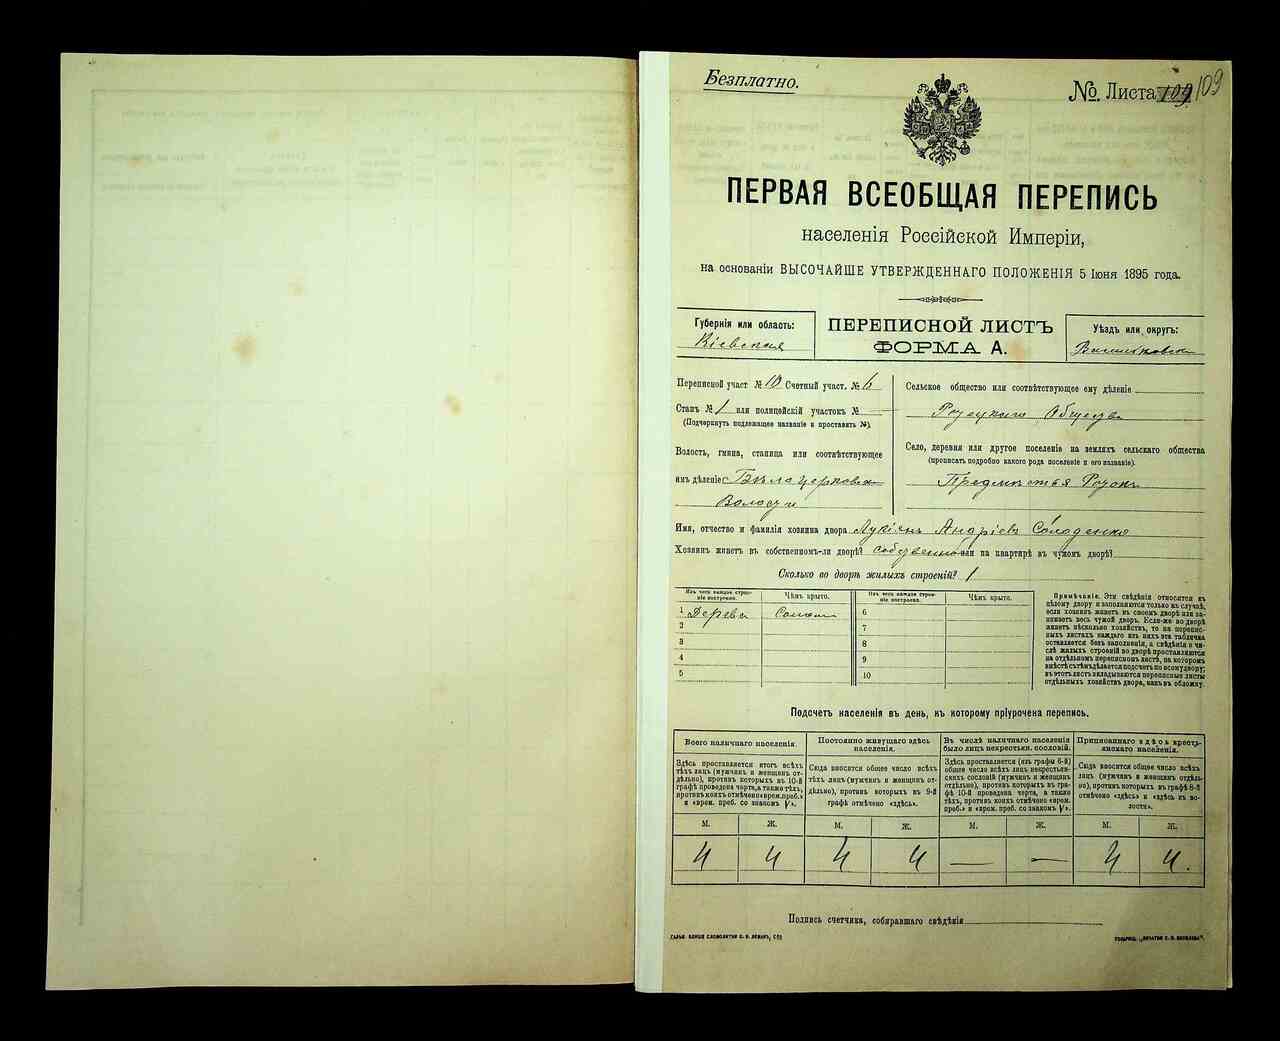 Безплатно.
№ Листа 109
ПЕРВАЯ ВСЕОБЩАЯ ПЕРЕПИСЬ
населенія Россійской Имперіи,
на основаніи ВЫСОЧАЙШЕ УТВЕРЖДЕННАГО ПОЛОЖЕНІЯ 5 Іюня 1895 года.
Губернія или область:
Кіевская
ПЕРЕПИСНОЙ ЛИСТЪ
ФОРМА А.
Уѣздъ или округъ:
Переписной участ № 10 Счетный участ. № 6
Станъ № 1 или полицейскій участокъ №
(Подчеркнуть подлежащее названіе и проставить №).
Волость, гмина, станица или соотвѣтствующее
имъ дѣленіе Бѣлоцерковск
Волости
Сельское общество или соотвѣтствующее ему дѣленіе
Село, деревня или другое поселеніе на земляхъ сельскаго общества
(прописать подробно какого рода поселеніе и его названіе).
Предмѣстья
Имя, отчество и фамилія хозяина двора Лукіянъ Андріевъ Солоденко
Хозяинъ живетъ въ собственномъ-ли дворѣ? или на квартирѣ въ чужомъ дворѣ?
Сколько во дворѣ жилыхъ строеній? 1
Изъ чего каждое строеніе построено.
Чѣмъ крыто.
Изъ чего каждое строеніе построено.
Чѣмъ крыто.
1 Дерева Солом
2
3
4
5
6
7
8
9
10
Примѣчаніе. Эти свѣдѣнія относятся къ
цѣлому двору и заполняются только въ случаѣ,
если хозяинъ живетъ въ своемъ дворѣ или занимаетъ
весь чужой дворъ. Если-же во дворѣ
живетъ нѣсколько хозяйствъ, то на переписныхъ
листахъ каждаго изъ нихъ эта табличка
оставляется безъ заполненія, а свѣдѣнія о числѣ
жилыхъ строеній во дворѣ проставляются
на отдѣльномъ переписномъ листѣ, на которомъ
вмѣстѣ съ тѣмъ дѣлается подсчетъ по всему двору;
въ этотъ листъ вкладываются переписные листы
отдѣльныхъ хозяйствъ двора, какъ въ обложку.
Подсчетъ населенія въ день, къ которому пріурочена перепись.
Всего наличнаго населенія.
Здѣсь проставляется итогъ всѣхъ
тѣхъ лицъ (мужчинъ и женщинъ отдѣльно),
противъ которыхъ въ 10-й
графѣ проведена черта, а также тѣхъ,
противъ коихъ отмѣчено «врем. преб.»
и «врем. преб. со знакомъ V».
Постоянно живущаго здѣсь
населенія.
Сюда вносится общее число всѣхъ
тѣхъ лицъ (мужчинъ и женщинъ отдѣльно),
противъ которыхъ въ 9-й
графѣ отмѣчено «здѣсь».
Въ числѣ наличнаго населенія
было лицъ некрестьян. сословій.
Здѣсь проставляется (изъ графы 6-й)
общее число всѣхъ лицъ некрестьянскихъ
сословій (мужчинъ и женщинъ
отдѣльно), противъ которыхъ въ графѣ
10-й проведена черта, а также
тѣхъ, противъ коихъ отмѣчено «врем.
преб.» и «врем. преб. со знакомъ V».
Приписаннаго здѣсь крестьянскаго
населенія.
Сюда вносится общее число всѣхъ
лицъ (мужчинъ и женщинъ отдѣльно),
противъ которыхъ въ графѣ 8-й
отмѣчено «здѣсь» и «здѣсь въ волости».
М. Ж. М. Ж. М. Ж. М. Ж.
4 4 4 4 — — 4 4.
Подпись счетчика, собиравшаго свѣдѣнія